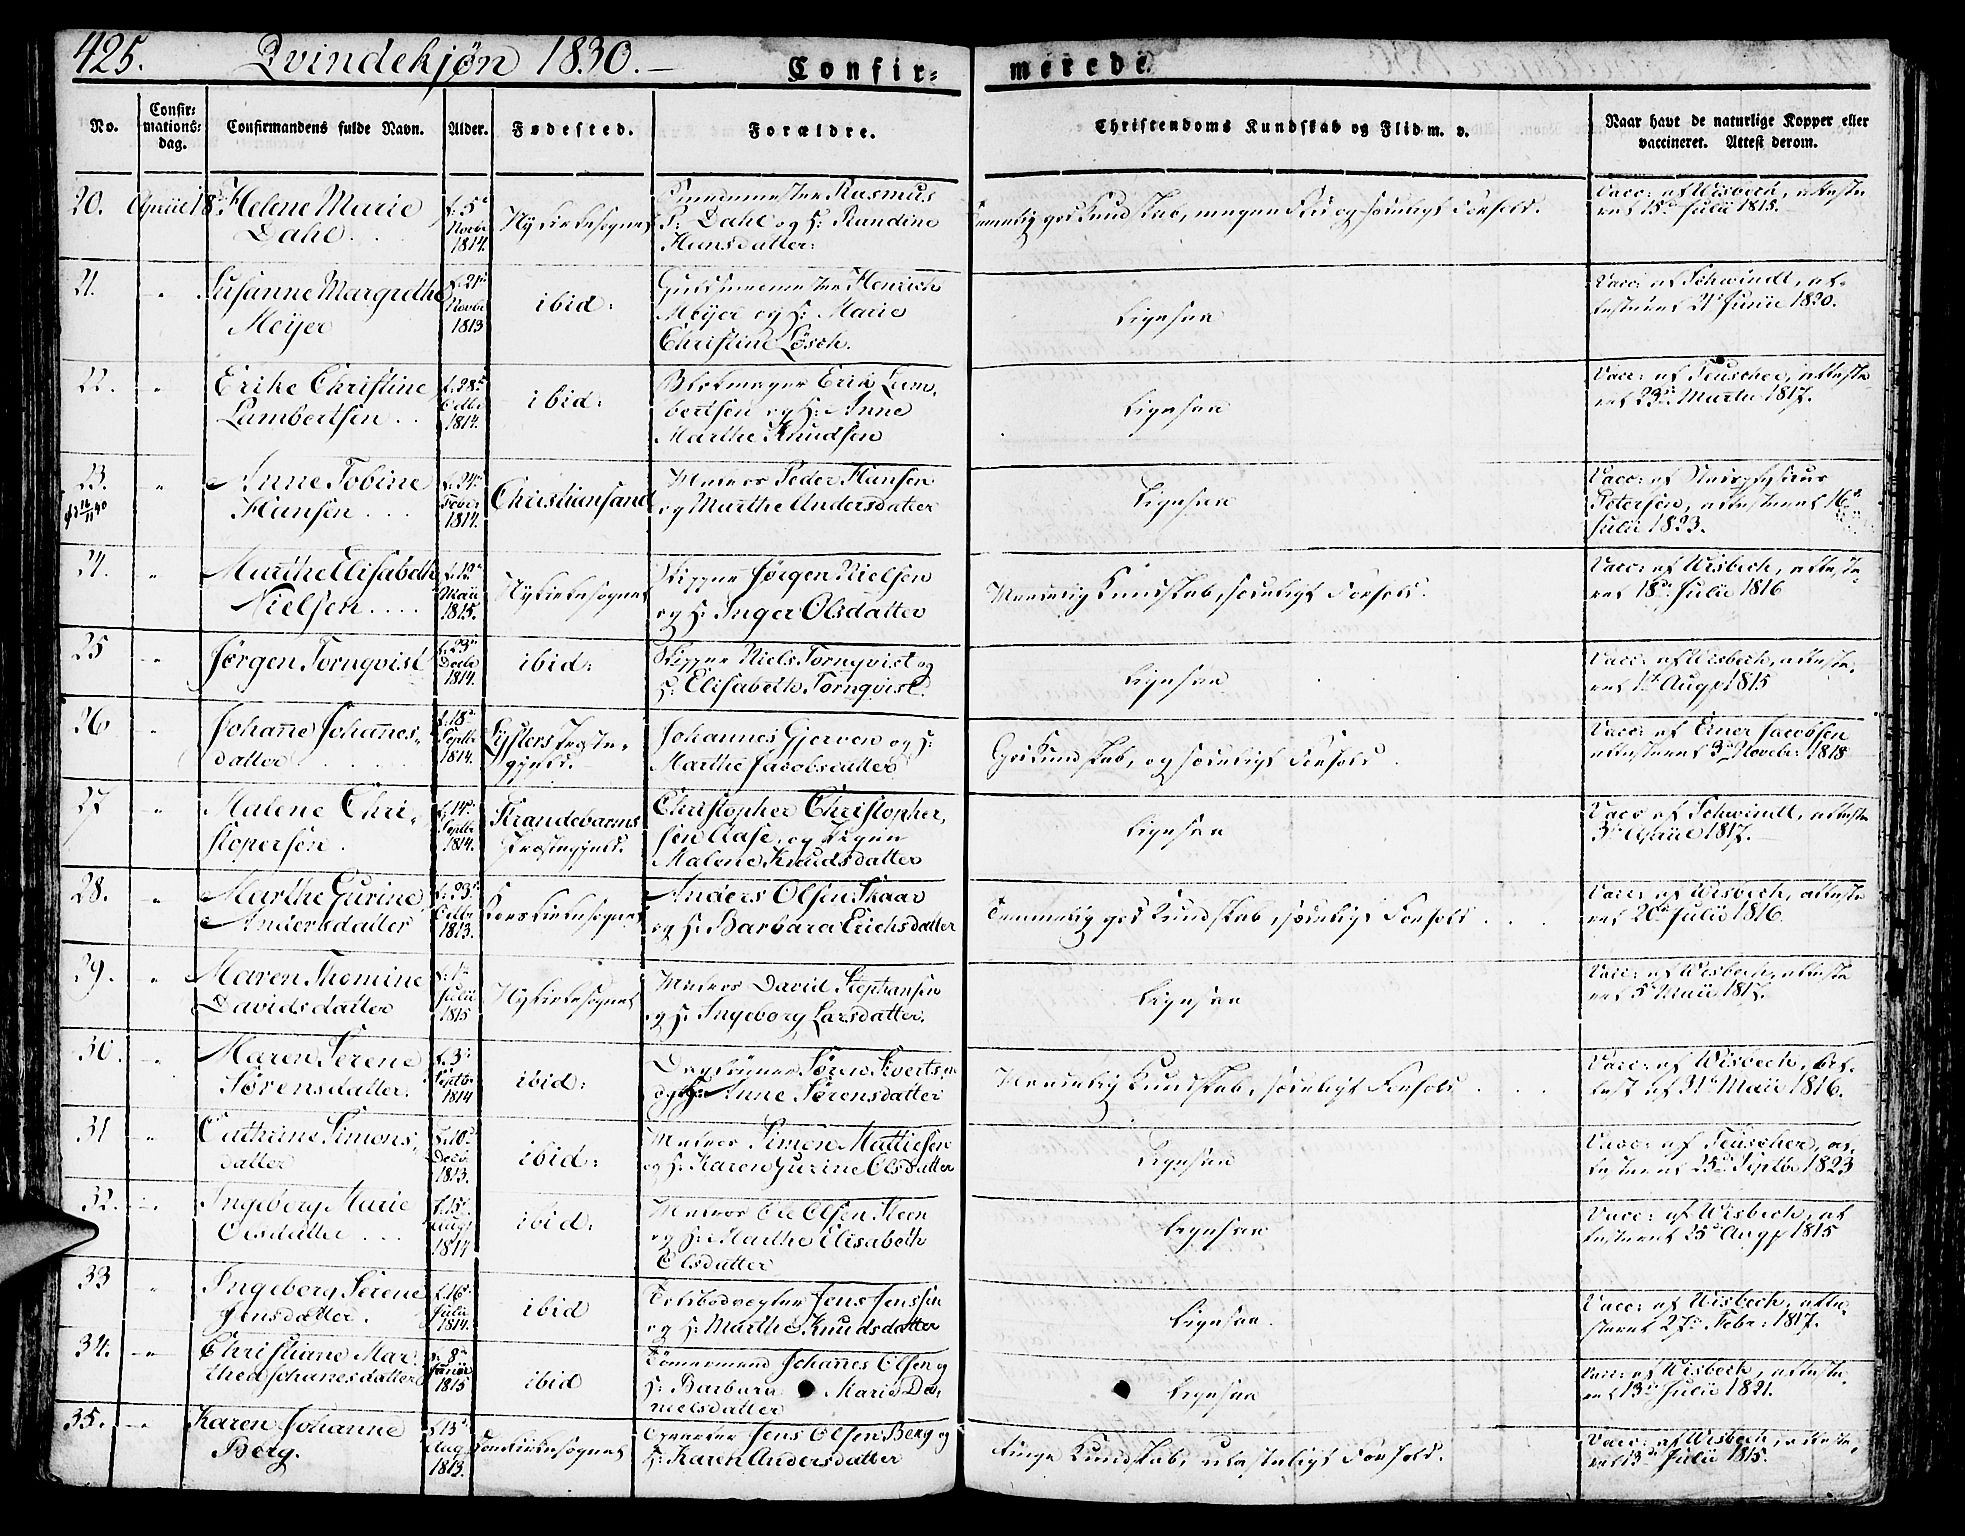 425. Qvindekjøn 1830.
Confirmerede.
No.
Confirmations-dag.
Confirmandens fulde Navn.
Alder.
Fødested.
Forældre.
Christendoms Kundskab og Flid m. v.
Naar havt de naturlige Kopper eller vaccineret. Attest derom.
20.
April 18d
Helene Marie
Dahl
f. 5te
Novbr
1814.
Nykirkesognet
Rasmus
P: Dahl og H: Randine
Hansdatter:
Temmelig god Kundskab, megen Flid og sædeligt Forhold.
Vacc: af Wisbech, atteste-
ret 15d Julii 1815.
21.
"
Susanne Margrethe
Meyer
f. 21d
Novbr
1813
ibid:
Guldsmedmester Henrich
Meyer og H: Marie
Christine Lösch.
Ligesaa
Vacc: af Schwindt, at-
testeret 21d Junii 1820.
22.
"
Erike Christine
Lambertsen
f. 28d
Octbr
1814.
ibid:
Blokmager Erik Lam-
bertsen og H: Anne
Marthe Knudsen
Ligesaa
Vacc: af Teuscher, atteste-
ret 23d Martii 1817.
23.
"
Anne Tobine
Hansen
f. 24d
Febr
1814.
Christiansand
Matros Peder Hansen
og Marthe Andersdatter
Ligesaa
Vacc: af
Petersen, attesteret 16d
Julii 1823.
24.
"
Marthe Elisabeth
Nielsen
f. 12d
Maii
1815.
Nykirkesognet
Skipper Jørgen Nielsen
og H: Inger Olsdatter
Maadelig Kundskab, sædeligt Forhold.
Vacc: af Wisbech, atteste-
ret 18d Julii 1816
25
"
Jørgen Tornqvist
f. 23d
Decbr
1814.
ibid:
Skipper Niels Tornqvist og
H: Elisabeth Tornqvist.
Ligesaa
Vacc: af Wisbech, atteste-
ret 1t Augt 1815
26
"
Johanne Johannes-
datter
f. 18d
Septbr
1814.
Lysters Præste-
gjeld.
Johannes Gjerven og H:
Marthe Jacobsdatter
God Kundskab, og sædeligt Forhold
Vacc: af Einer Jacobsen
attesteret 3d Novebr: 1818
27
"
Malene Chri-
stopersen.
f. 14d
Septbr
1814.
Strandebarms
Præstegjeld.
Christopher Christopher-
sen Aase, og Pigen
Malene Knudsdatter
Ligesaa
Vacc af Schwindt, atteste
3d April 1817.
28.
"
Marthe Gurine
Andersdatter
f. 23d
Octbr
1813.
Korskirkesognet
Anders Olsen Skaar
og H: Barbara Erichsdatter
Temmelig god Kundskab, sædeligt Forhold
Vacc: af Wisbech, atteste-
ret 20d Julii 1816.
29.
"
Maren Thomine
Davidsdatter
f. 1d
Julii
1815
Nykirkesognet
Matros David Stephansen
og H: Ingeborg Larsdatter.
Ligesaa
Vacc: af Wisbech, atteste
ret 5d Maii 1817.
30.
"
Maren Serene
Sørensdatter.
f. 3d
Septbr
1814
ibid:
Søren Sivertsen
og H: Anne Sørensdatter
Maadelig Kundskab, sædeligt Forhold
Vacc: af Wisbech, At-
test af 31d Maii 1816.
31
"
Cathrine Simons-
datter
f. 10d
Decbr
1813.
ibid:
Matros Simon Mathiesen
og H: Karen Gurine Olsdatter
Ligesaa
Vacc: af Teuscher, at-
testeret 25d Septbr 1823
32.
"
Ingeborg Marie
Olsdatter
f. 15d
Augt
1814
ibid:
Matros Ole Olsen Steen
og H: Marthe Elisabeth
Olsdatter
Ligesaa
Vacc: af Wisbech, at
testeret 25d Augt 1815
33
"
Ingeborg Serene
Jensdatter.
f. 16d
Julii
1814.
ibid
Tolbodvogter Jens Jenssen
og H: Marthe Knudsdatter
Ligesaa.
Vacc: af Wisbech, atte-
steret 27d Febr: 1817.
34.
"
Christiane Mar-
thea Johanesdatter
f. 8d
Januar
1815
ibid
Tømmermand Johannes Olsen og
H: Barbara Marie Da-
nielsdatter
Ligesaa
Vacc: af Wisbech, atteste-
ret 13d Julii 1821.
35.
"
Karen Johanne
Berg.
f. 13d
Aug
1813.
Korskirkesognet
Jens Olsen Berg og
H: Karen Andersdatter
Ringe Kundskab, ulasteligt Forhold.
Vacc: af Wisbech, atteste-
ret 13d Julii 1815.